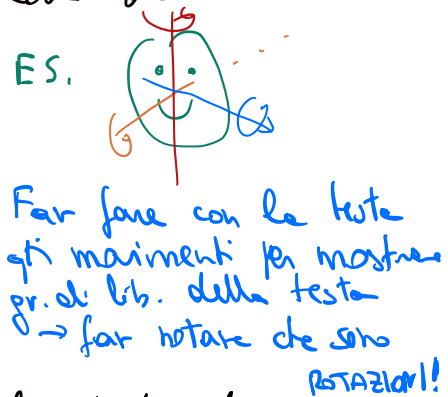 ES.
Far fare con la testa
gli movimenti per mostrare
gr. di lib. della testa
→ far notare che sono
ROTAZIONI!